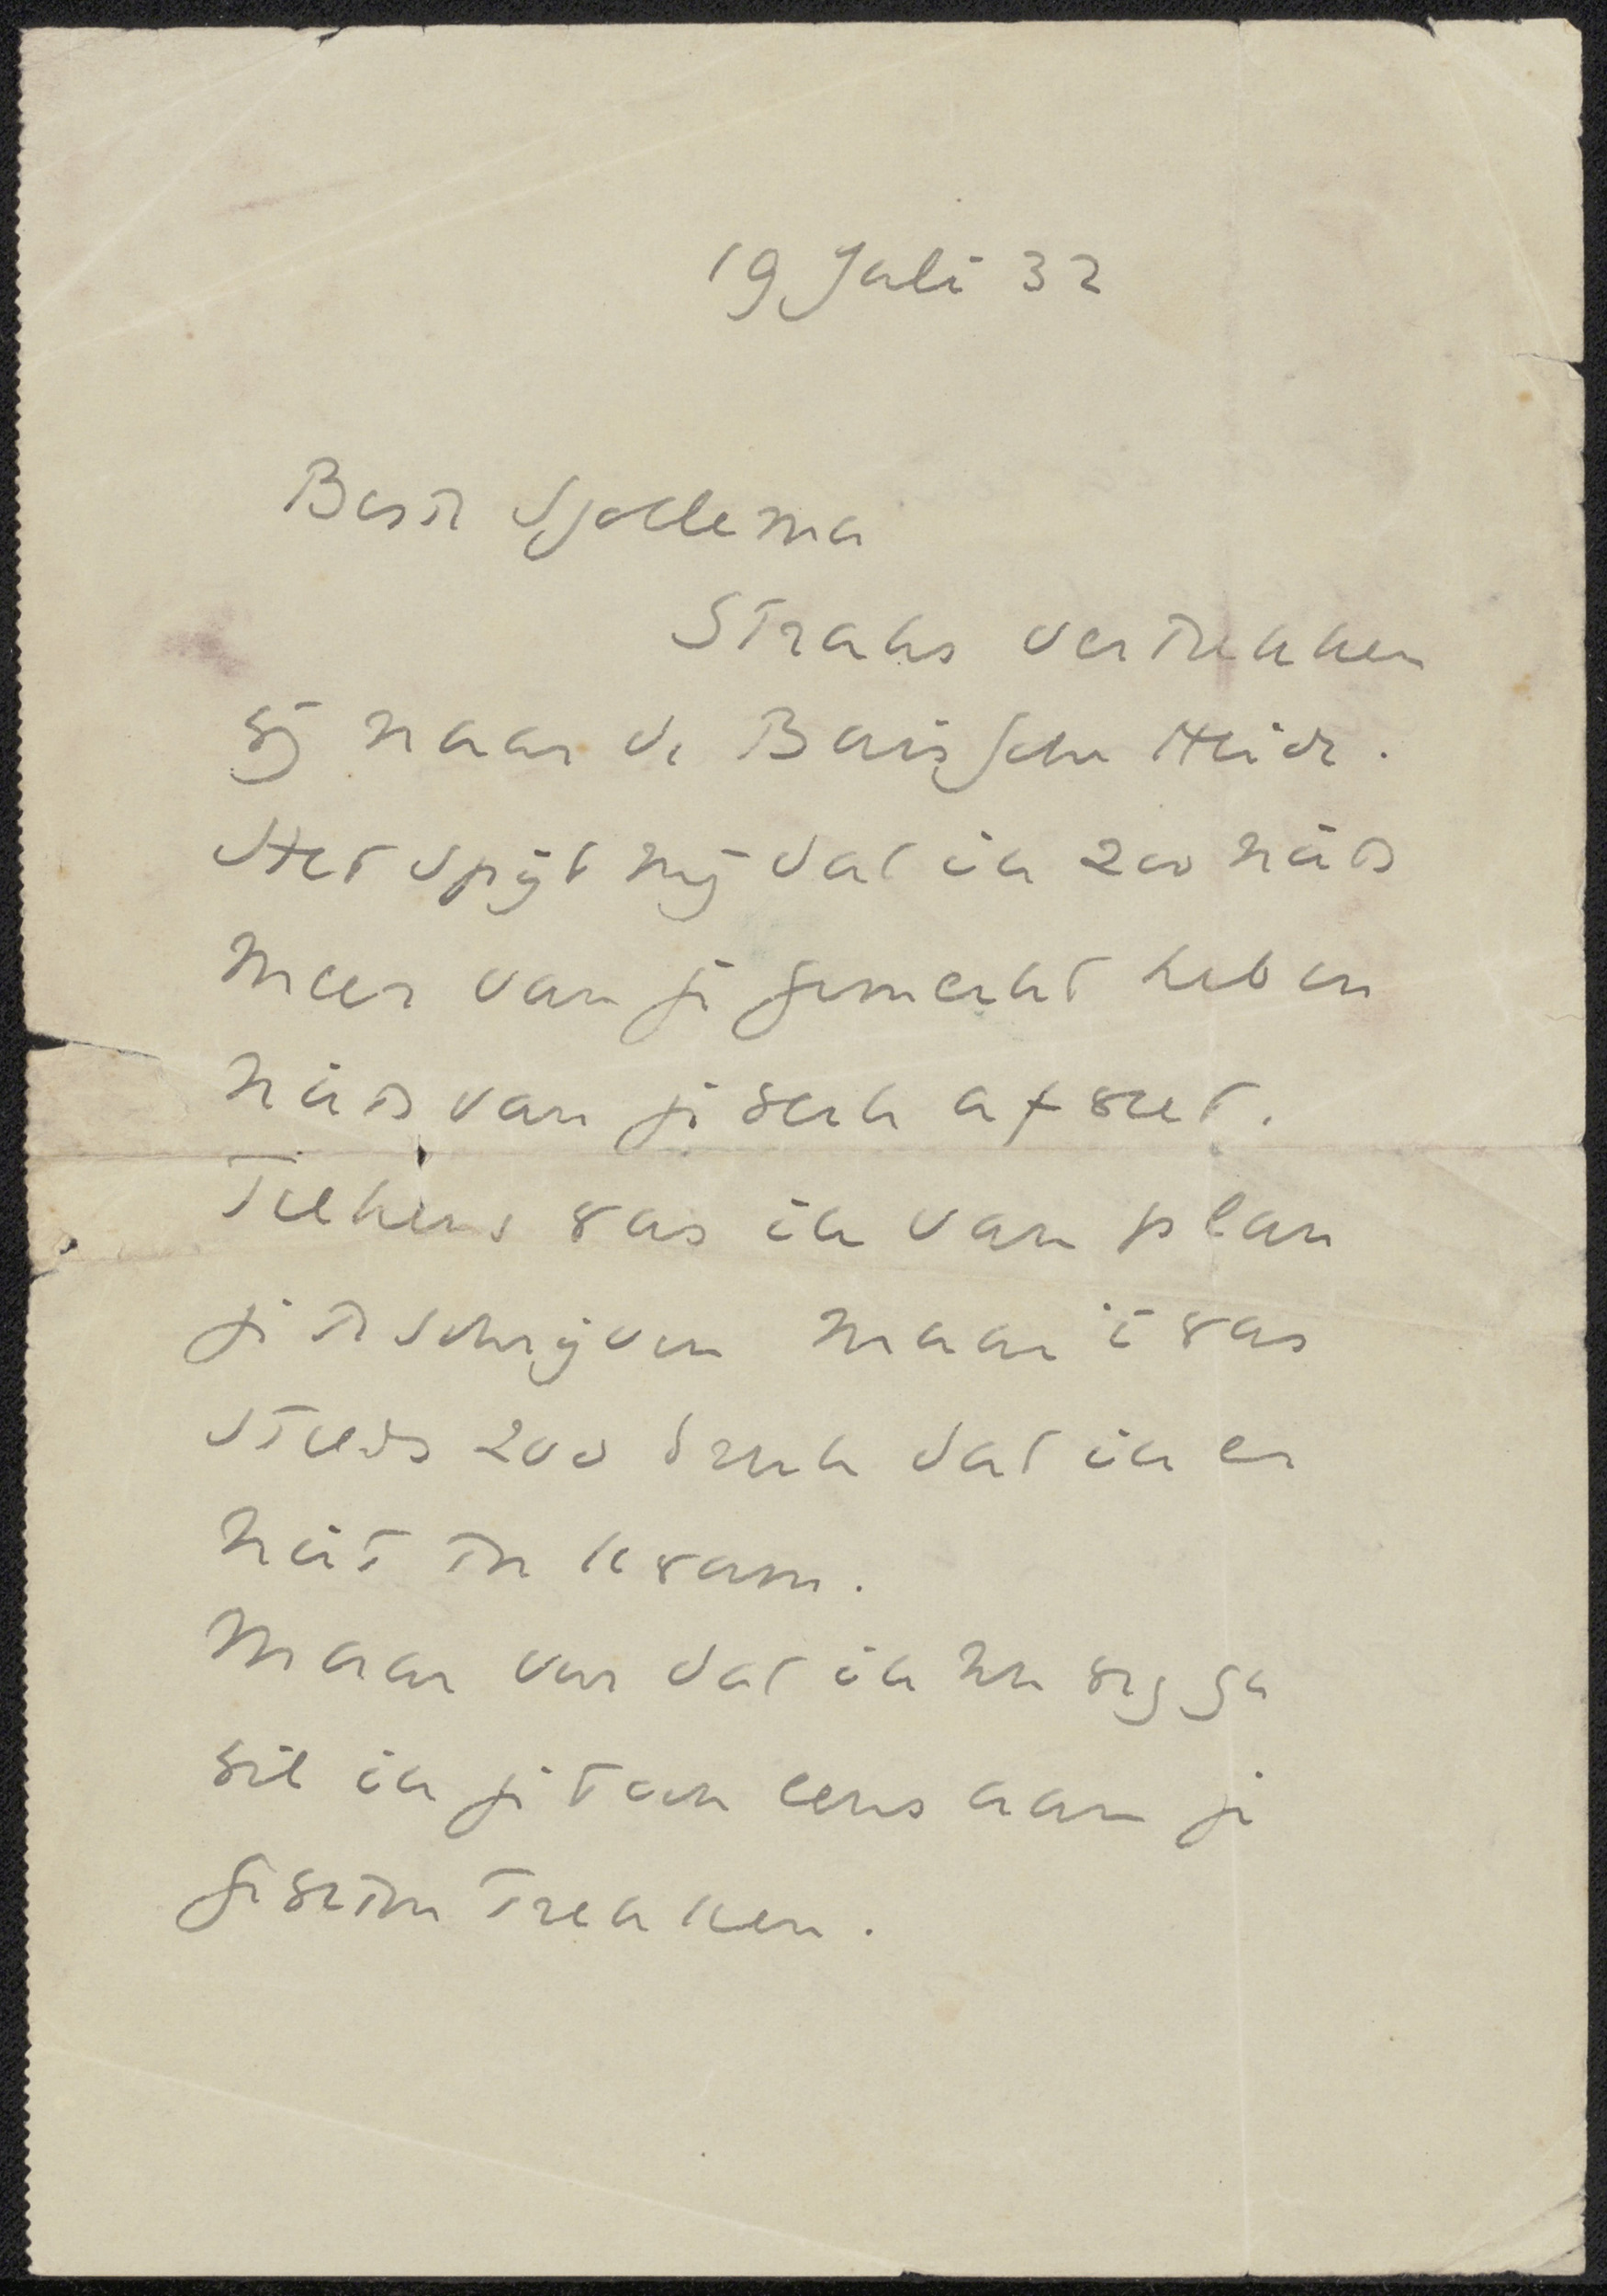 19 Juli 32
Beste Sjollema
Straks vertrekken
wij naar de Bairische Heide.
Het spijt mij dat ik zoo niets
meer van je gemerkt heb en
niets van je werk af weet.
Telkens was ik van plan
je te schrijven maar 't was
steeds zoo druk dat ik er
niet toe kwam.
Maar voor dat ik nu weg ga
wil ik je toch eens aan je
geweten trekken.